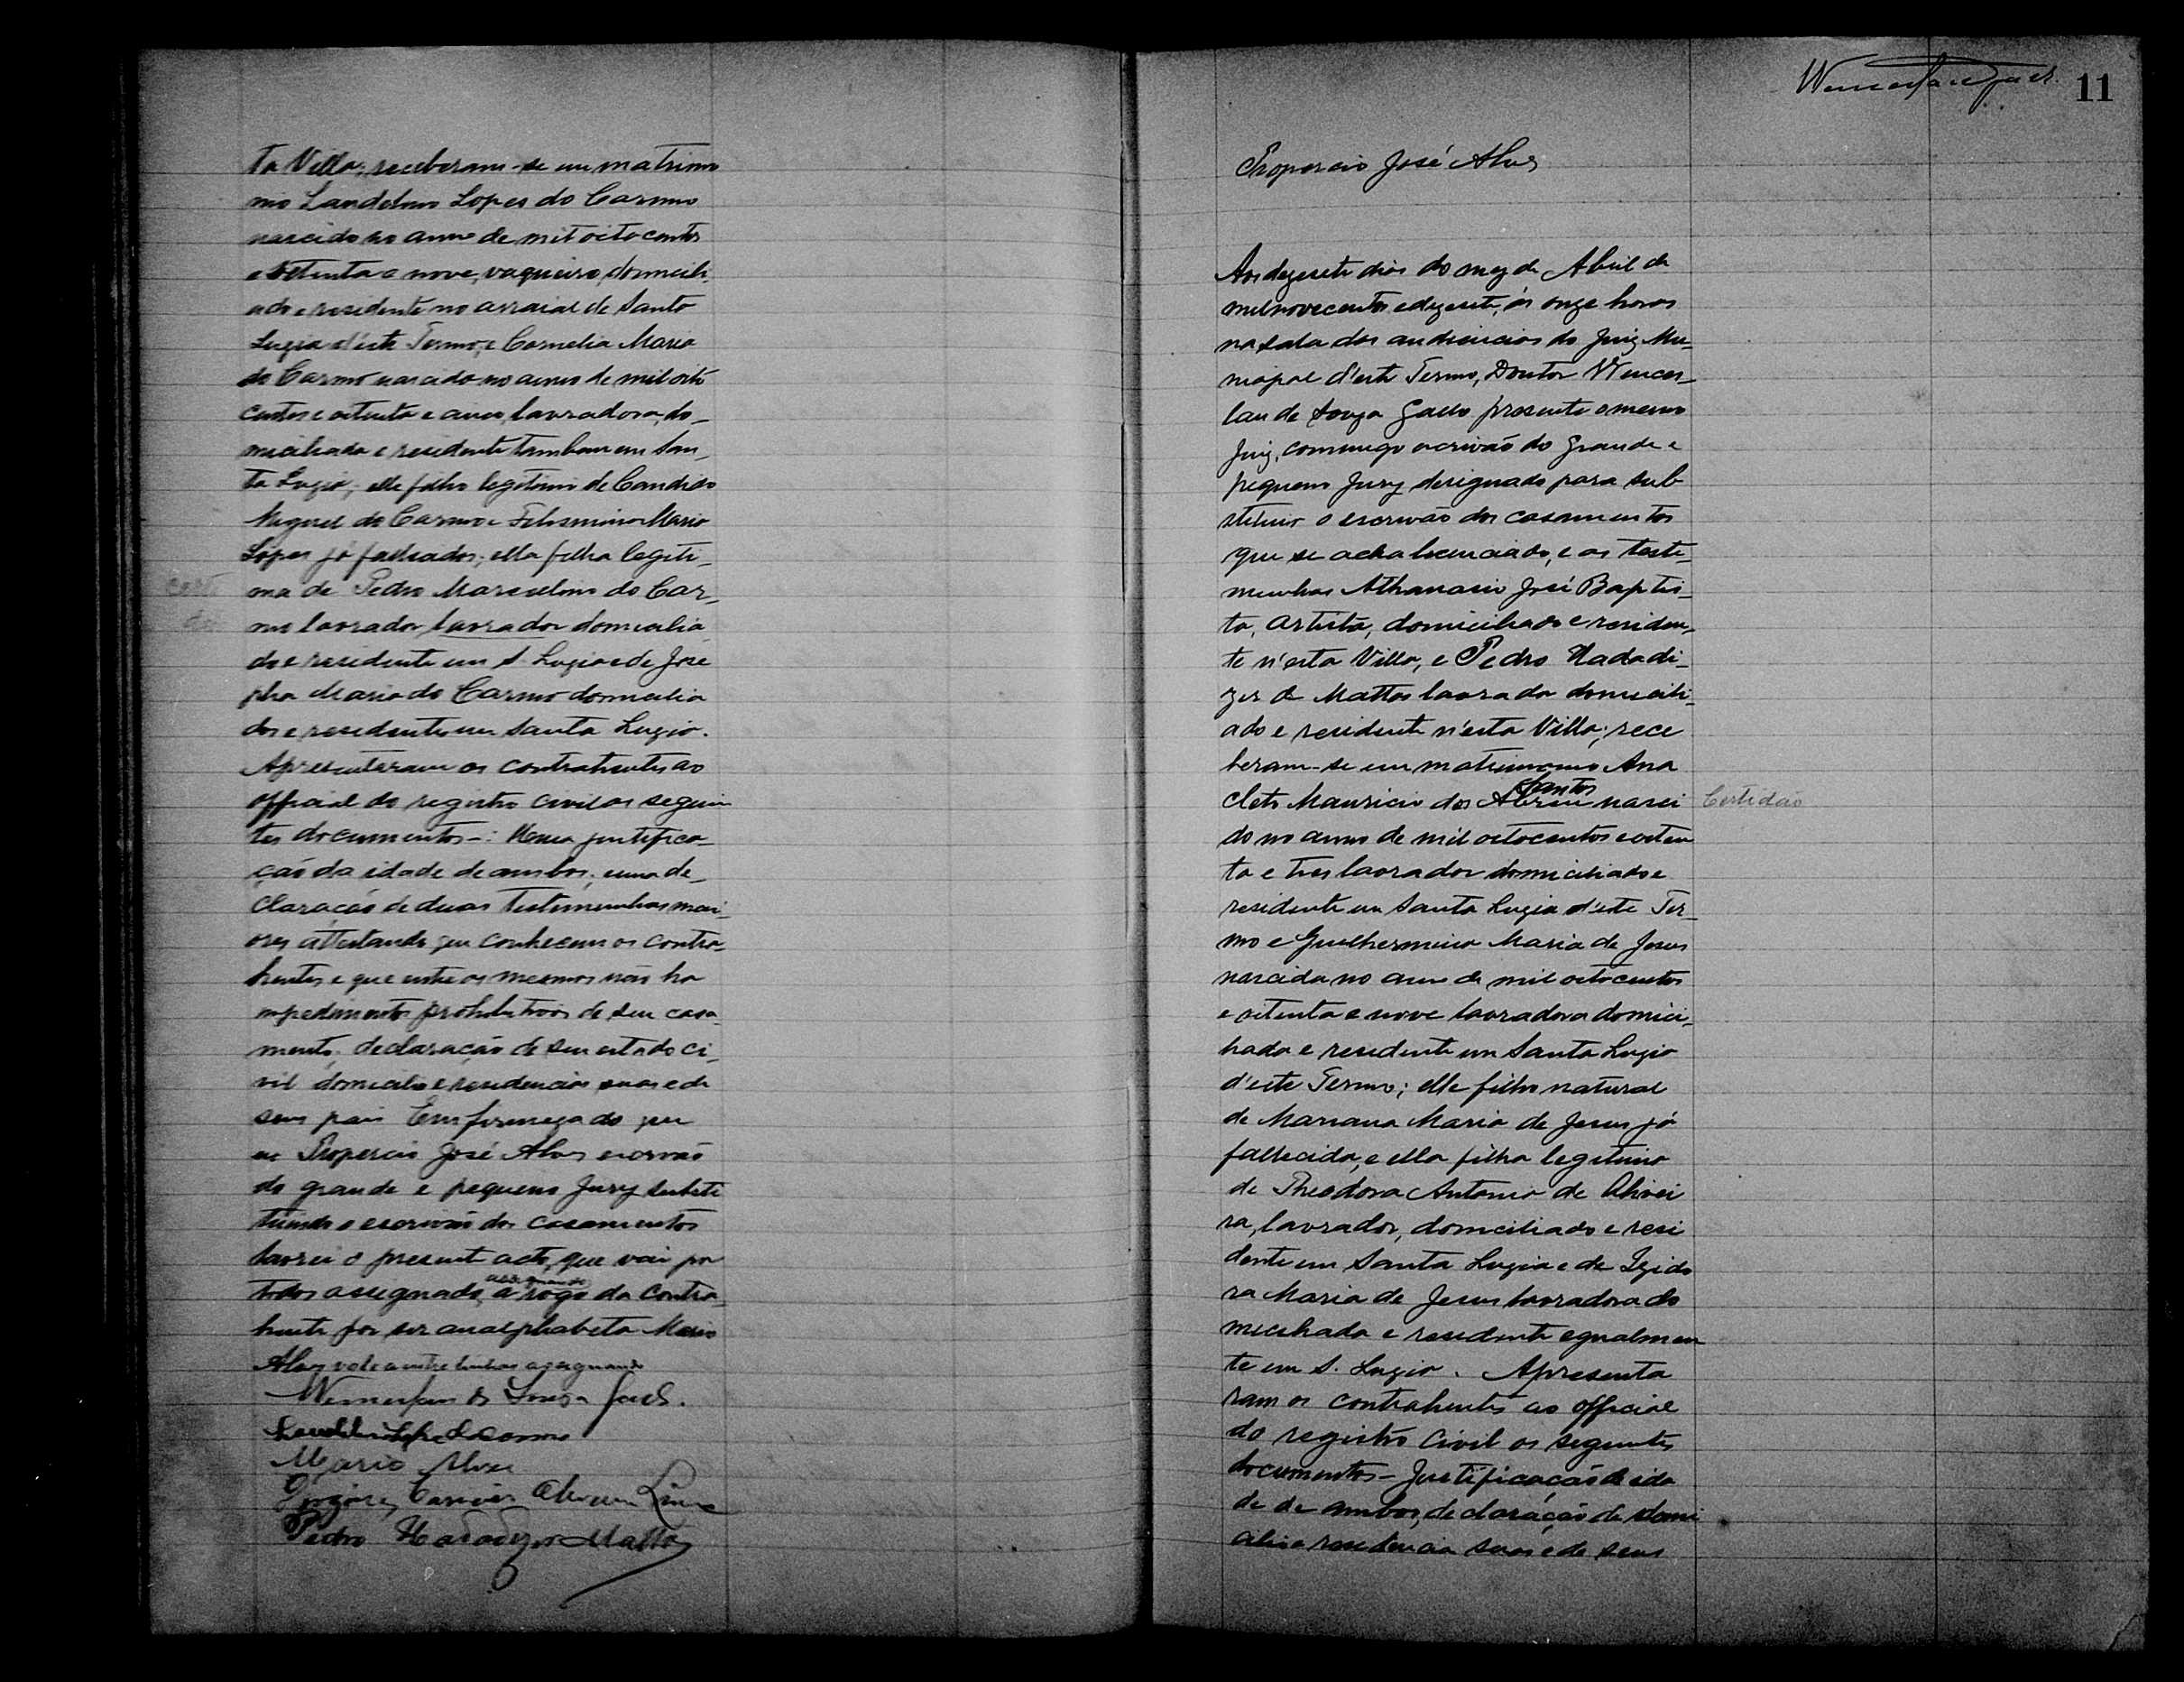 ta Villa; receberam-se em matrimo
nio Landelino Lopes do Carmo
nascido no anno de mil oitocentos
e setenta e nove, vaqueiro, domicili
ado e residente no arraial de Santa
Luzia d'este Termo, e Cornelia Maria
do Carmo nascida no anno de mil oito
centos e oitenta e cinco, lavradora, do_
miciliada e residente tambem em San_
ta Luzia; elle filho legitimo de Candido
Miguel do Carmo e Felismina Maria
Lopes já fallecidos; ella filha legiti_
ma de Pedro Marcelino do Car_
mo lavrador lavrador domicilia
do e residente em S. Luzia e de Jose
pha Maria do Carmo domicilia
dos e residentes em Santa Luzia.
Apresentaram os contrahentes ao
official do registro civil os seguin
tes documentos-: Uma justifica_
ção da idade de ambos; uma de_
claração de duas testemunhas mai_
ores attestando que conhecem os contra_
hentes e que entre os mesmos não ha
impedimentos prohibitivos de seu casa_
mento; declaração de seu estado ci_
vil domicilio e residencias suas e de
seus pais Em firmeza do que
eu Propercio José Alves escrivão
do grande e pequeno Jury substi
tuindo o escrivão dos casamentos
lavrei o presente acto, que vai por
todos assignado, assignando a rogo da contra_
hente por ser analphabeta Mario
Alves vale a entre linhas assignando
de Souza
Landelino Lopes do Carmo
Mario Alves
Pedro Mattos
11
Propercio José Alves
Aos dezesete dias do mez de Abril de
mil novecentos e dezesete, ás onze horas
na sala das audiencias do Juiz Mu_
nicipal d'este Termo, Doutor Wences_
lau de Souza presente o mesmo
Juiz, commigo escrivão do Grande e
pequeno Jury designado para sub
stituir o escrivão dos casamentos
que se acha licenciado, e as teste_
munhas Athanasio José Baptis_
ta, artista, domiciliado e residen_
te n'esta Villa, e Pedro
de Mattos lavrador domicili_
ado e residente n'esta Villa; rece
beram-se em matrimonio Ana
cleto Mauricio dos Abreu Santos nasci
Certidão
do no anno de mil oitocentos e oiten
ta e tres lavrador domiciliado e
residente em Santa Luzia d'este Ter_
mo e Guilhermina Maria de Jesus
nascida no anno de mil oitocentos
e oitenta e nove lavradora domici_
liada e residente em Santa Luzia
d'este Termo; elle filho natural
de Mariana Maria de Jesus já
fallecida, e ella filha legitima
de Theodoro Antonio de Olivei
ra, lavrador, domiciliado e resi
dente em Santa Luzia e de Izido
ra Maria de Jesus lavradora do
miciliada e residente egualmen
te em S. Luzia. Apresenta
ram os contrahentes ao official
do registro civil os seguintes
documentos - Justificação de ida
de de ambos, declaração de domi
cilio e residencia suas e de seus